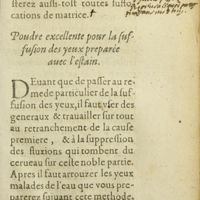 sterez aussi-tost toutes suffo-
cations de matrice. †
Poudre excellente pour la suf-
fusion des yeux preparée
auec l'estain.
DEuant que de passer au re-
mede particulier de la suf-
fusion des yeux, il faut vser des
generaux & trauailler sur tout
au retranchement de la cause
premiere, & à la suppression
des fluxions qui tombent du
cerueau sur ceste noble partie.
Apres il faut arrouzer les yeux
malades de l'eau que vous pre-
parerez suiuant ceste methode.